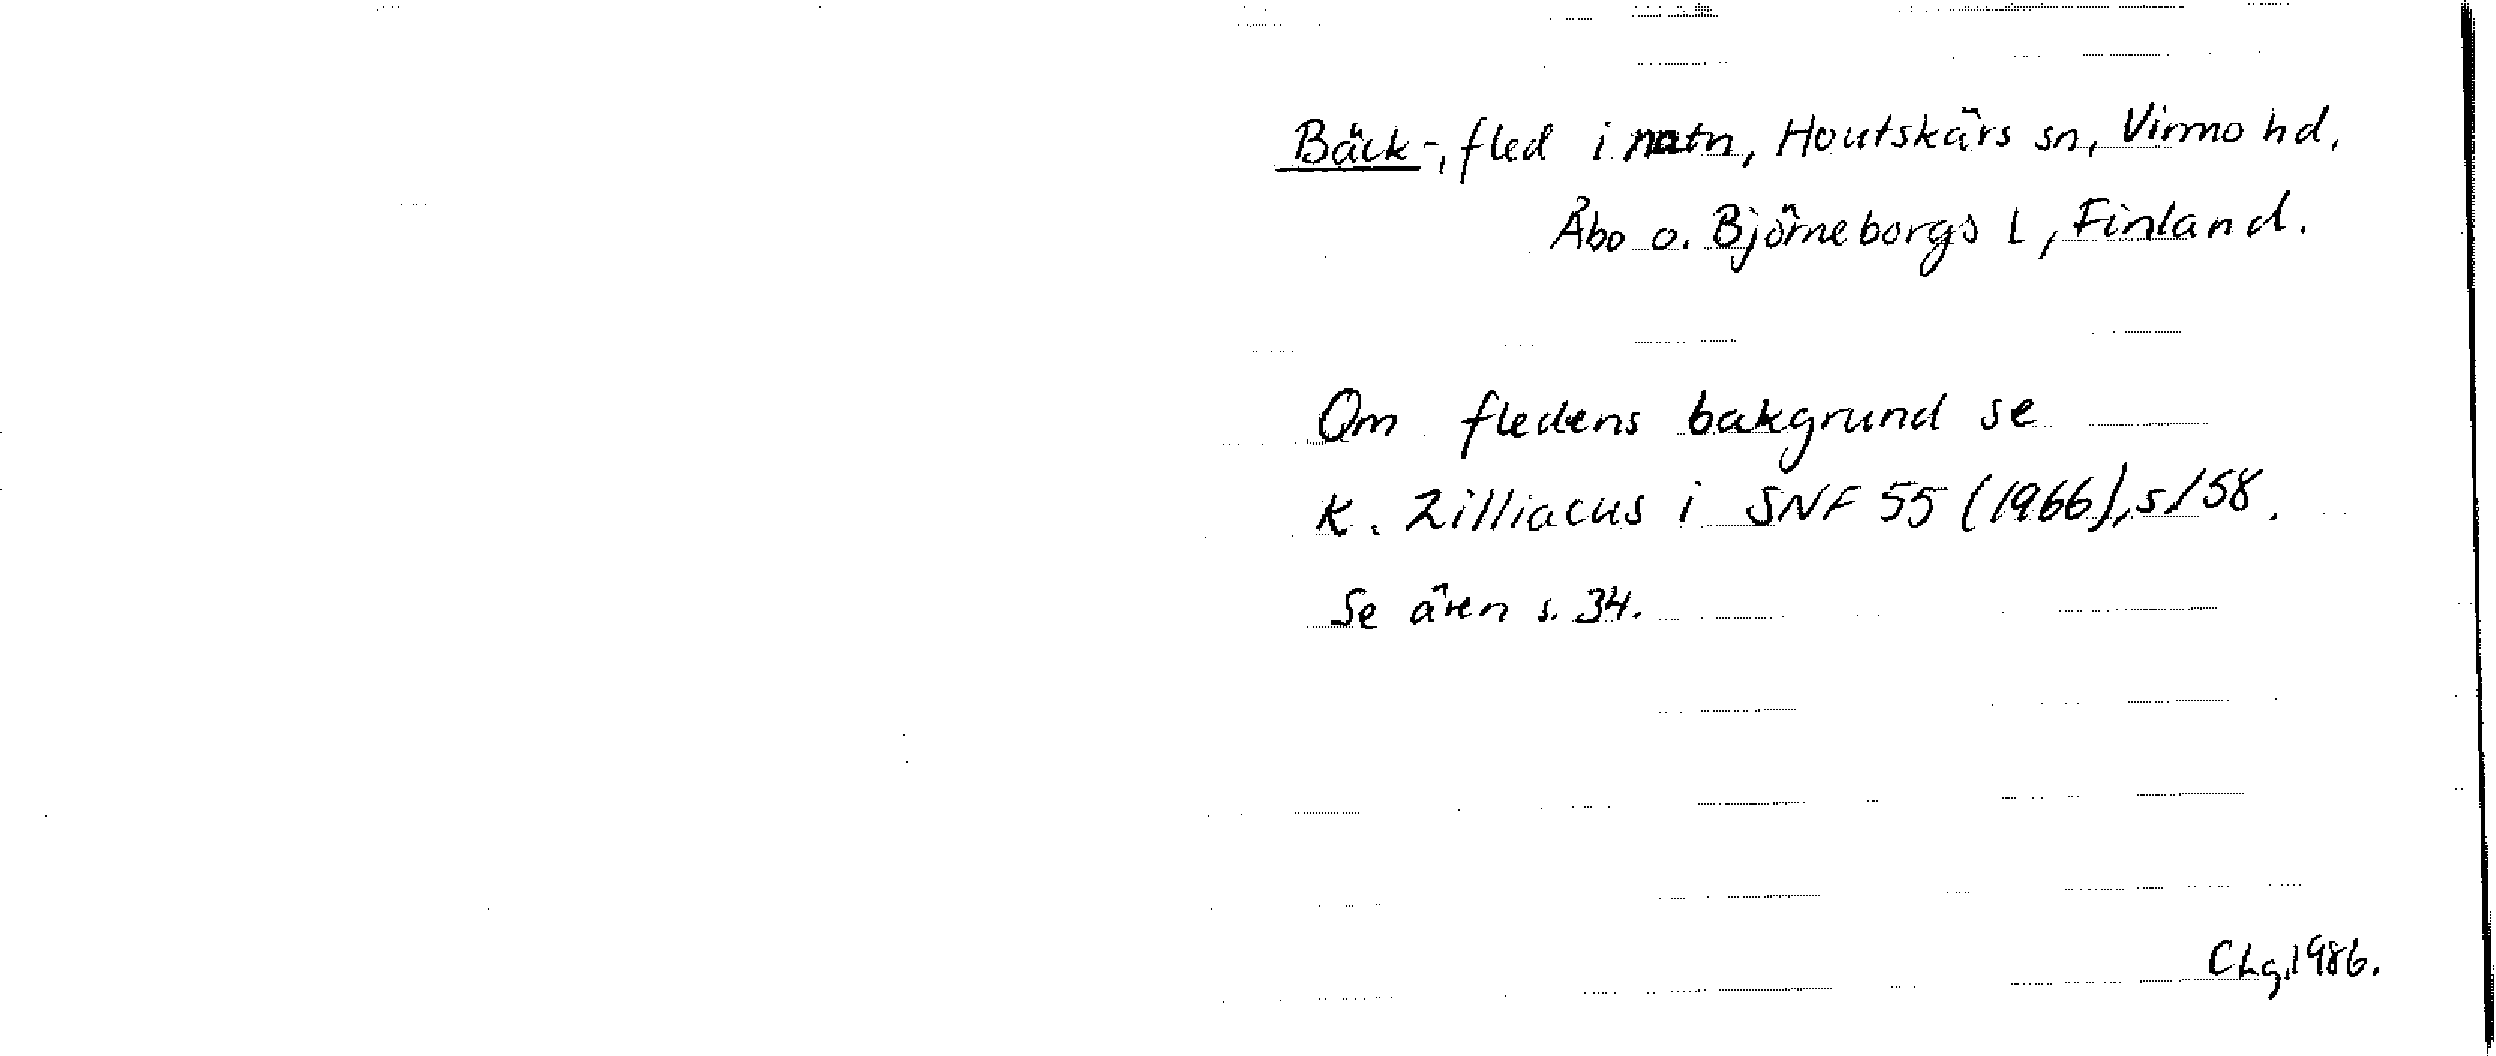 Bäck-, fled i natn, Houtskärs sn, Virmo hd,
Åbo o. Björneborgs l, Finland.
Om fledens bakgrund se
K. Zilliacus i SNF 55 (1966), s 158.
Se även s. 34.
CLg, 1986.